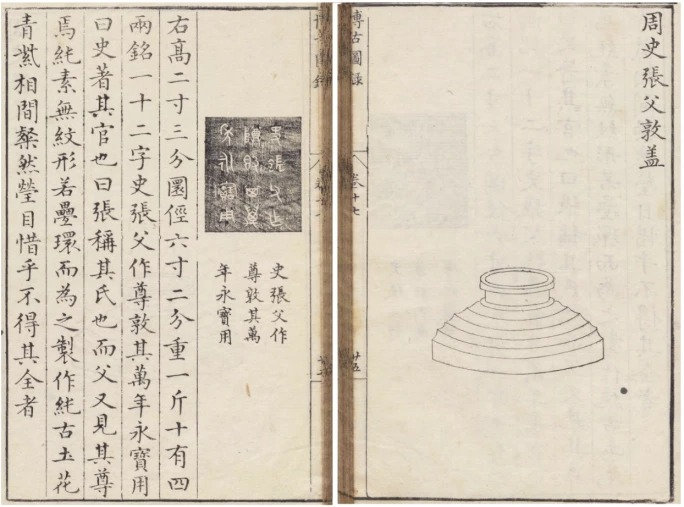 周史張父敦蓋
博古圖錄
卷十七
廿五
史張父作
尊敦其萬
年永寶用
右髙二寸三分圜徑六寸二分重一斤十有四
兩銘一十二字史張父作尊敦其萬年永寶用
曰史著其官也曰張稱其氏也而父又見其尊
焉純素無紋形若疊環而為之製作純古土花
青紫相間粲然瑩目惜乎不得其全者